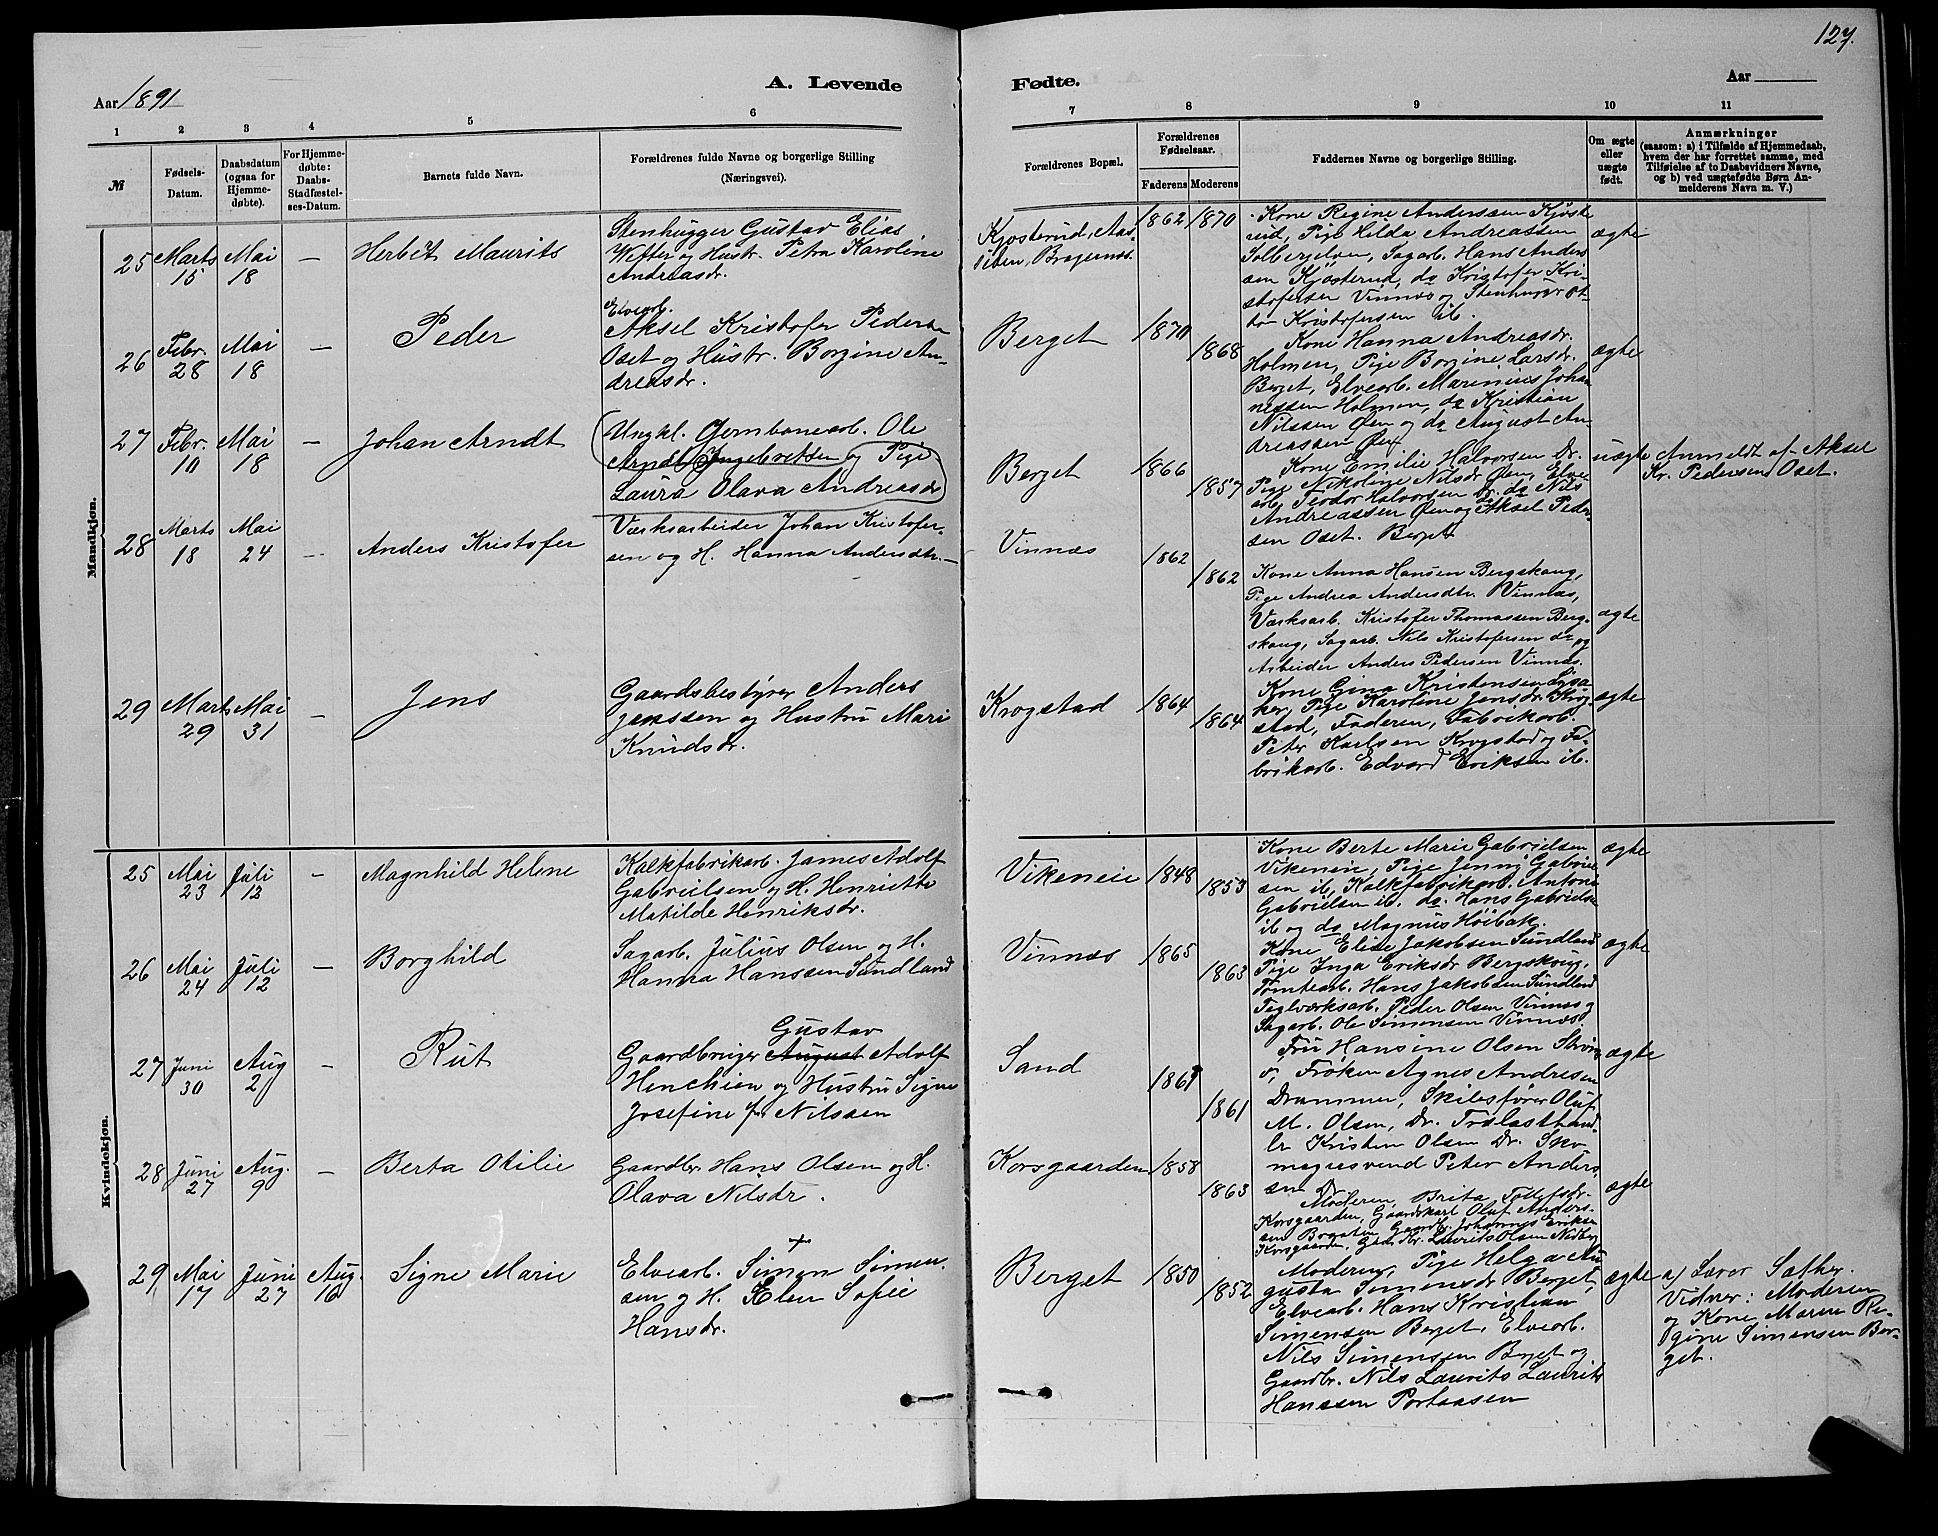 127.
Aar 1891
A. Levende
Fødte.
Aar
1 2 3 4 5 6 7 8 9 10 11
№
Fødsels-
Datum.
Daabsdatum
(ogsaa for
Hjemme-
døbte).
For Hjemme-
døbte:
Daabs-
Stadfæstel-
ses-Datum.
Barnets fulde Navn.
Forældrenes fulde Navne og borgerlige Stilling
(Næringsvei).
Forældrenes Bopæl.
Forældrenes
Fødselsaar.
Faderens Moderens
Faddernes Navne og Stilling.
Om ægte
eller
uægte
født.
Anmærkninger
(saasom: a) i Tilfælde af Hjemmedaab,
hvem der har forrettet samme, med
Tilføielse af to Daabsvidners Navne,
og b) ved uægtefødte Børn An-
melderens Navn m. V.)
Mandkjøn.
25 Marts 15 Mai 18 — Herbët Maurits
Stenhugger Gustav Elias
Wefter og Hustr. Petra Karoline
Andreasdr.
Kjøsterud, Aas-
siden, Bragernes.
1862 1870
Kone Regine Anderssen Kjøste
rud, Pige Hilda Andreassen
Solbergelven, Sagarb. Hans Anders
sen Kjøsterud, do Kristofer Kri-
stofersen Vinnæs og Stenhugger Ot-
to Kristofersen ib.
ægte
26 Febr. 28 Mai 18 — Peder
Elvearb.
Aksel Kristofer Peders.
Oset og Hustr. Borgine An-
dreasdr.
Berget
1870 1868
Kone Hanna Andreasdr.
Holmen, Pige Borgine Larsdr.
Berget, Elvearb. Marinius Johan
nessen Holmen, do Kristian
Nilssen Øen og do August An
dreassen Øen
ægte
27 Febr. 10 Mai 18 — Johan Arndt
Ungkl. Jernbanearb. Ole
Arndt Ingebretsen og Pige
Laura Olava Andreasdr
Berget
1866 1857
Kone Emilie Halvorsen Dr.
Pige Nikoline Nilsdr Øen, Elve
arb. Teodor Halvorsen Dr. do Nils
Andreassen Øen og do Aksel Peder-
sen Oset. Berget
uægte
Anmeldt af Aksel
Kr. Pedersen Oset.
28 Marts 18 Mai 24 — Anders Kristofer
Værksarbeider Johan Kristofer-
sen og H. Hanna Andersdtr.
Vinnæs
1862 1862
Kone Anna Hansen Bergskaug,
Pige Andrea Andersdtr. Vinnæs,
Værksarb. Kristofer Thomassen Berg-
skaug, Sagarb. Nils Kristofersen do og
Arbeider Anders Pedersen Vinnæs.
ægte
29 Marts 29 Mai 31 — Jens
Gaardsbestyrer Anders
Jenssen og Hustru Mari
Knudsdr.
Krogstad
1864 1864
Kone Gina Kristensen Lysa
ker, Pige Karoline Jensdr. Krog
stad, Faderen, Fabrikarb.
Peter Karlsen Krogstad og Fa-
brikarb. Edvard Eriksen ib.
ægte
Kvindekjøn.
25 Mai 23 Juli 12 — Magnhild Helene
Kalkfabrikarb. James Adolf
Gabrielsen og H. Henriette
Matilde Henriksdr.
Vikeneie
1848 1853
Kone Berte Marie Gabrielsen
Vikeneie, Pige Jenny Gabriel
sen ib, Kalkfabrikarb. Anton
Gabrielsen ib. do. Hans Gabrielse
ib og do Magnus Höibak.
ægte
26 Mai 24 Juli 12 — Borghild
Sagarb. Julius Olsen og H.
Hanna Hanssen Sundland
Vinnæs
1865 1863
Kone Elise Jakobsen Sundland
Pige Inga Eriksdr Bergskaug,
Tomtearb. Hans Jakobsen Sundland
Teglværksarb. Peder Olsen Vinnæs og
Sagarb. Ole Simensen Vinnæs.
ægte
27 Juni 30 Aug 2 — Rut
Gustav
Gaardbruger August Adolf
Henchien og Hustru Signe
Josefine f. Nilssen
Sand
1867 1861
Fru Hansine Olsen Strøm
Frøken Agnes Andresen
Drammen, Skibsfører Oluf
M. Olsen, Dr. Trælasthand
ler Kristen Olsen Dr. Sko
magersvend Peter Anders
sen Dr.
ægte
28 Juni 27 Aug. 9 — Berta Otilie
Gaardbr. Hans Olsen og H.
Olava Nilsdr.
Korsgaarden
1858 1863
Moderen, Brita Tollefsdr.
Korsgaarden, Gaardskarl Oluf Anders-
sen Gaardbr. Johannes Eriksen
Korsgaarden, Laurits Olsen Nedby
ægte
29 Mai 17 Juni 27 Aug. 16 Signe Marie
Elvearb. Simon Simen-
sen og H. Elen Sofie
Hansdr.
Berget
1850 1852
Moderen, Pige Helga Au
gusta Simensdr Berget,
Elvearb. Hans Kristian
Simensen Berget, Elvearb.
Nils Simensen Berget og
Gaardbr. Nils Laurits Laurits
Hanssen Portaasen
ægte
a/ Lærer Sæther.
Vidner: Moderen
og Kone Maren Re-
gine Simensen Ber-
get.